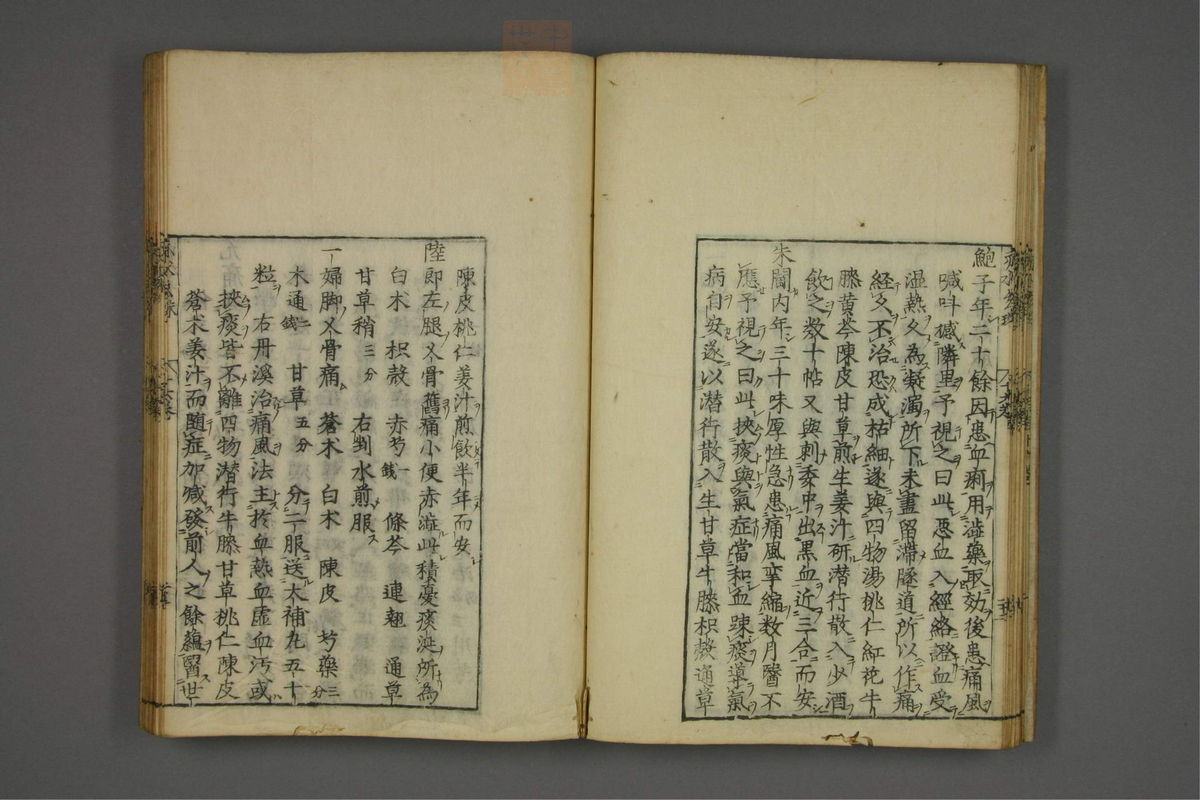 鮑子年二十餘因患血痢用澁藥取効後患痛風
喊叫撼隣里予視之曰此惡血入經絡證血受
湿熱久為凝濁所下未盡留滯隧道所以作痛
経久不治恐成枯細遂與四物湯桃仁紅花牛
膝黄芩陳皮甘草煎生姜汁研潜行散入少酒
飲之数十帖又與刺委中出黒血近三合而安
朱閫内年三十味厚性急患痛風挛縮数月醫不
應予視之曰此挾痰與氣症當和血踈痰導氣
病自安遂以潜行散入生甘草牛膝枳殻通草
陳皮桃仁姜汁煎飲半年而安
陸郎左腿叉骨舊痛小便赤澁此積憂痰涎所為
白术 枳殻 赤芍一錢 條芩 連翹 通草
甘草稍三分 右剉水煎服
一婦脚叉骨痛 蒼术 白术 陳皮 芍藥三分
木通二錢 甘草五分 分二服送大補丸五十
粒 右丹溪治痛風法主於血熱血虚血汚或
挾痰皆不離四物潜行牛膝甘草桃仁陳皮
蒼术姜汁而随症加减發前人之餘蘊醫世